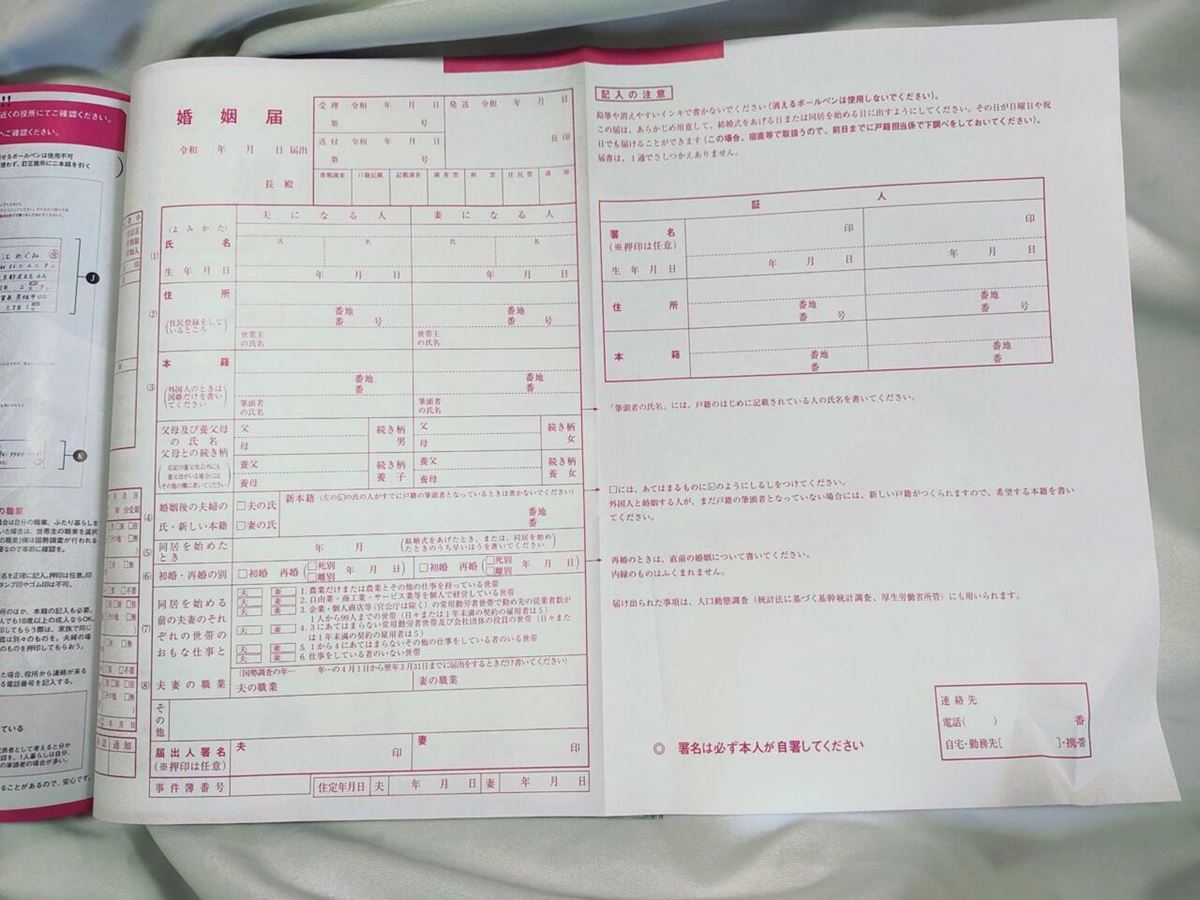 !!
近くの役所にてご確認ください。
へご確認ください。
せるボールペンは使用不可
使わず、訂正箇所に二本線を引く
J
K
の職業
名を正確に記入。押印は任意。印
タンプ印やゴム印は不可。
のほか、本籍の記入も必要。
人でも18歳以上の成人ならOK。
印してもらう際は、家族で同じ
のものを押印してもらう。
た場合、役所から連絡が来る
る電話番号を記入する。
ている
ることがあるので、安心です。
婚姻届
令和 年 月 日届出
長 殿
受理 令和 年 月 日
第 号
送付 令和 年 月 日
第 号
発送 令和 年 月 日
長印
書類調査 戸籍記載 記載調査 調査票 附票 住民票 通知
夫になる人 妻になる人
(1)
(よみかた)
氏名
氏 名 氏 名
生年月日
年 月 日 年 月 日
(2)
住所
(住民登録をしているところ)
番地 番 号
番地 番 号
世帯主の氏名
世帯主の氏名
(3)
本籍
(外国人のときは国籍だけを書いてください)
番地 番
番地 番
筆頭者の氏名
筆頭者の氏名
父母及び養父母の氏名
父母との続き柄
(右記の養父母以外にも養父母がいる場合にはその他の欄に書いてください)
父 続き柄
母 男
父 続き柄
母 女
養父 続き柄
養母 養子
養父 続き柄
養母 養女
(4)
婚姻後の夫婦の氏・新しい本籍
□夫の氏
□妻の氏
新本籍(左の☑の氏の人がすでに戸籍の筆頭者となっているときは書かないでください)
番地
番
(5)
同居を始めたとき
年 月
(結婚式をあげたとき、または、同居を始めたときのうち早いほうを書いてください)
(6)
初婚・再婚の別
□初婚 再婚(□死別 □離別 年 月 日)
□初婚 再婚(□死別 □離別 年 月 日)
(7)
同居を始める前の夫妻のそれぞれの世帯のおもな仕事と
夫 妻 1. 農業だけまたは農業とその他の仕事を持っている世帯
夫 妻 2. 自由業・商工業・サービス業等を個人で経営している世帯
夫 妻 3. 企業・個人商店等(官公庁は除く)の常用勤労者世帯で勤め先の従業者数が1人から99人までの世帯(日々または1年未満の契約の雇用者は5)
夫 妻 4. 3にあてはまらない常用勤労者世帯及び会社団体の役員の世帯(日々または1年未満の契約の雇用者は5)
夫 妻 5. 1から4にあてはまらないその他の仕事をしている者のいる世帯
夫 妻 6. 仕事をしている者のいない世帯
(8)
夫妻の職業
(国勢調査の年… 年…の4月1日から翌年3月31日までに届出をするときだけ書いてください)
夫の職業
妻の職業
その他
届出人署名
(※押印は任意)
夫 印
妻 印
事件簿番号
住定年月日 夫 年 月 日 妻 年 月 日
記入の注意
鉛筆や消えやすいインキで書かないでください(消えるボールペンは使用しないでください)。
この届は、あらかじめ用意して、結婚式をあげる日または同居を始める日に出すようにしてください。その日が日曜日や祝
日でも届けることができます(この場合、宿直等で取扱うので、前日までに戸籍担当係で下調べをしておいてください)。
届書は、1通でさしつかえありません。
証人
署名
(※押印は任意)
印 印
生年月日
年 月 日 年 月 日
住所
番地 番 号
番地 番 号
本籍
番地 番
番地 番
「筆頭者の氏名」には、戸籍のはじめに記載されている人の氏名を書いてください。
□には、あてはまるものに☑のようにしるしをつけてください。
外国人と婚姻する人が、まだ戸籍の筆頭者となっていない場合には、新しい戸籍がつくられますので、希望する本籍を書い
てください。
再婚のときは、直前の婚姻について書いてください。
内縁のものはふくまれません。
届け出られた事項は、人口動態調査(統計法に基づく基幹統計調査、厚生労働省所管)にも用いられます。
◎ 署名は必ず本人が自署してください
連絡先
電話( ) 番
自宅・勤務先[ ]・携帯